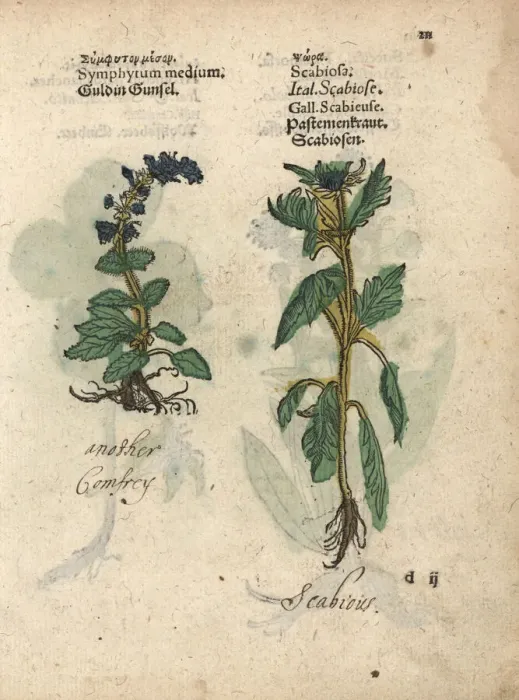 Σύμφυτον μέσον.
Symphytum medium.
Guldin Gunſel.
ψώρα.
Scabioſa.
Ital. Scabioſe.
Gall. Scabieuſe.
Paſtemenkraut.
Scabioſen.
another
Comfrey
d ij
Scabious.